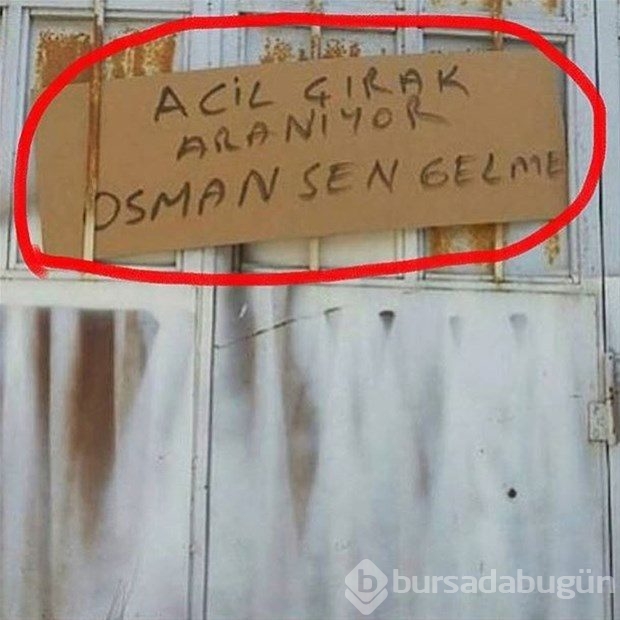 ACİL ÇIRAK
ARANIYOR
OSMAN SEN GELME
bursadabugün